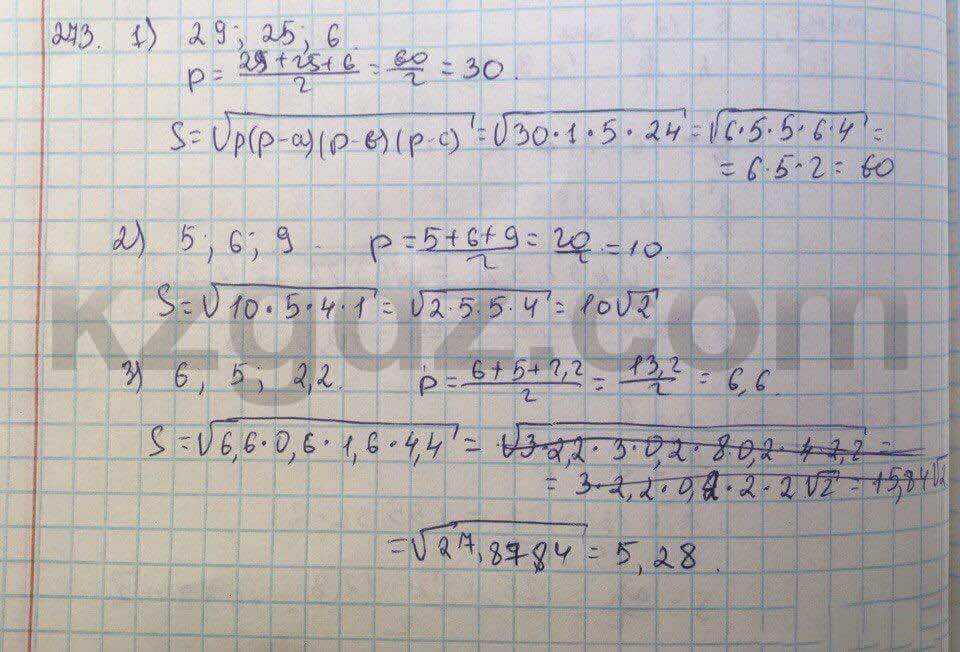 273. 1) 29; 25; 6.
p = (29+25+6)/2 = 60/2 = 30.
S = √(p(p-a)(p-b)(p-c)) = √(30·1·5·24) = √(6·5·5·6·4) =
= 6·5·2 = 60
2) 5; 6; 9. p = (5+6+9)/2 = 20/2 = 10.
S = √(10·5·4·1) = √(2·5·5·4) = 10√2
kzgdz.com
3) 6, 5; 2,2. p = (6+5+2,2)/2 = 13,2/2 = 6,6.
S = √(6,6·0,6·1,6·4,4) = √(3·2,2·3·0,2·8·0,2·4·2,2) =
= 3·2,2·0,2·2·2√2 = 15,84√2
= √27,8784 = 5,28.